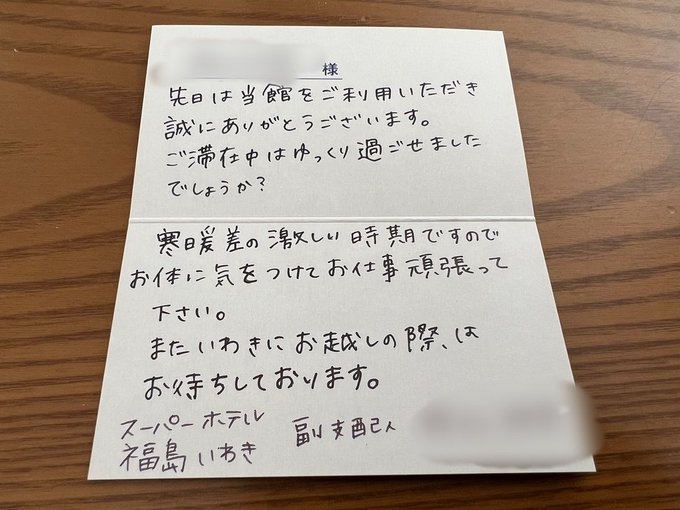 様
先日は当館をご利用いただき
誠にありがとうございます。
ご滞在中はゆっくり過ごせました
でしょうか？
寒暖差の激しい時期ですので
お体に気をつけてお仕事頑張って
下さい。
またいわきにお越しの際、は
お待ちしております。
スーパーホテル
福島いわき 副支配人